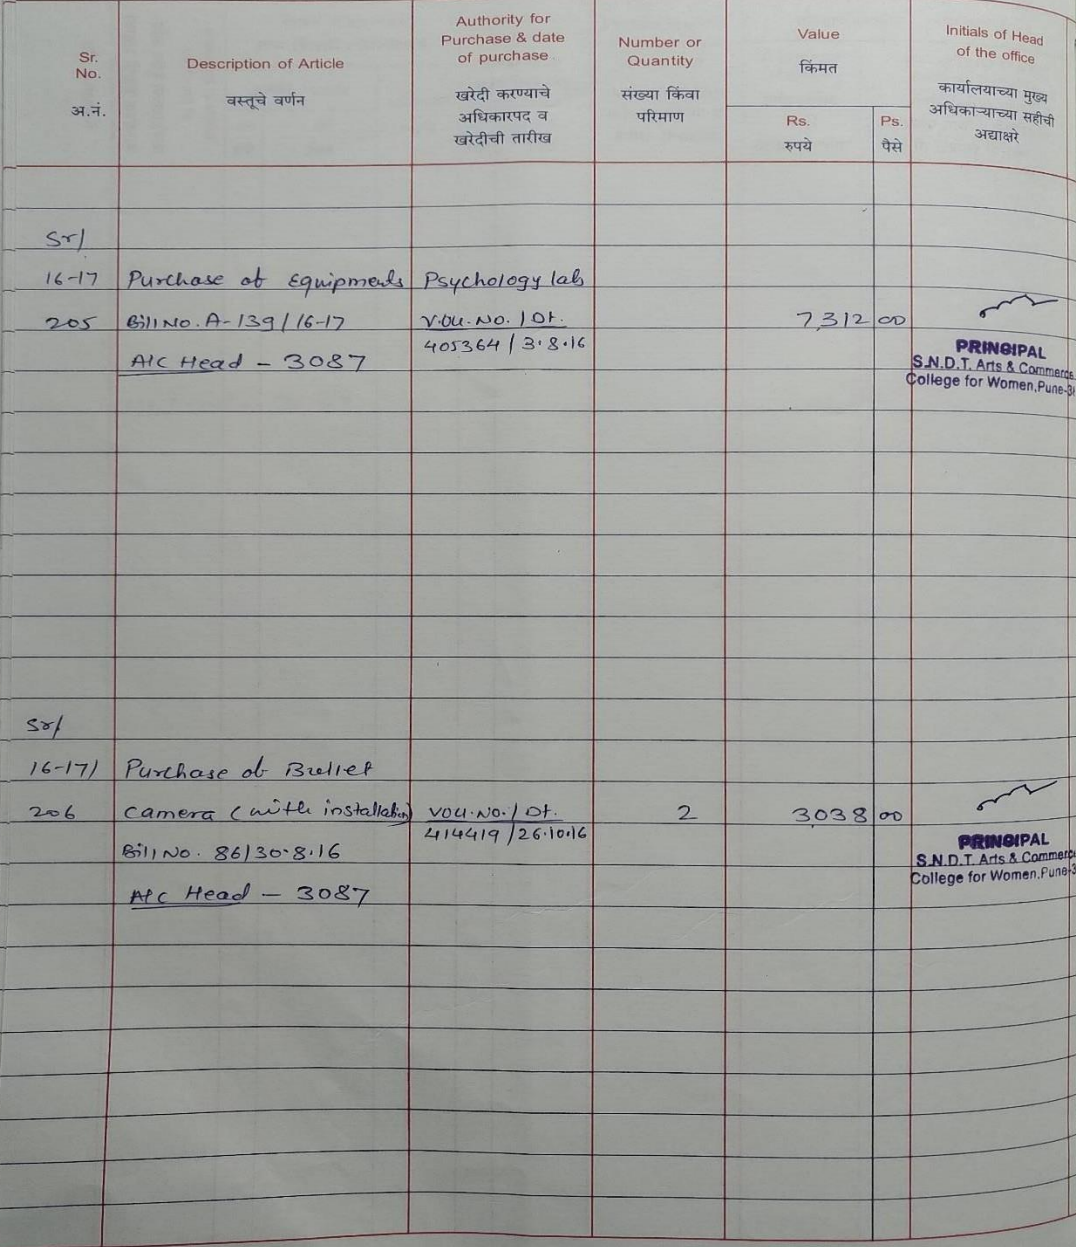 Sr. No.
अ.नं.
Description of Article
वस्तूचे वर्णन
Authority for
Purchase & date
of purchase
खरेदी करण्याचे
अधिकारपद व
खरेदीची तारीख
Number or
Quantity
संख्या किंवा
परिमाण
Value
किंमत
Rs.
रुपये
Ps.
पैसे
Initials of Head
of the office
कार्यालयाच्या मुख्य
अधिकाऱ्याच्या सहीची
अद्याक्षरे
Sr/
16-17 Purchase of Equipments Psychology lab
205 Bill No. A-139/16-17 Vou. No. / Dt. 7,312 00
405364 / 3.8.16
A/C Head - 3087
PRINCIPAL
S.N.D.T. Arts & Commerce
College for Women, Pune-3
Sr/
16-17/ Purchase of Bullet
206 Camera (with installation) Vou. No. / Dt. 2 3,038 00
414419 / 26.10.16
Bill No. 86/30.8.16
A/C Head - 3087
PRINCIPAL
S.N.D.T. Arts & Commerc
College for Women, Pune-3